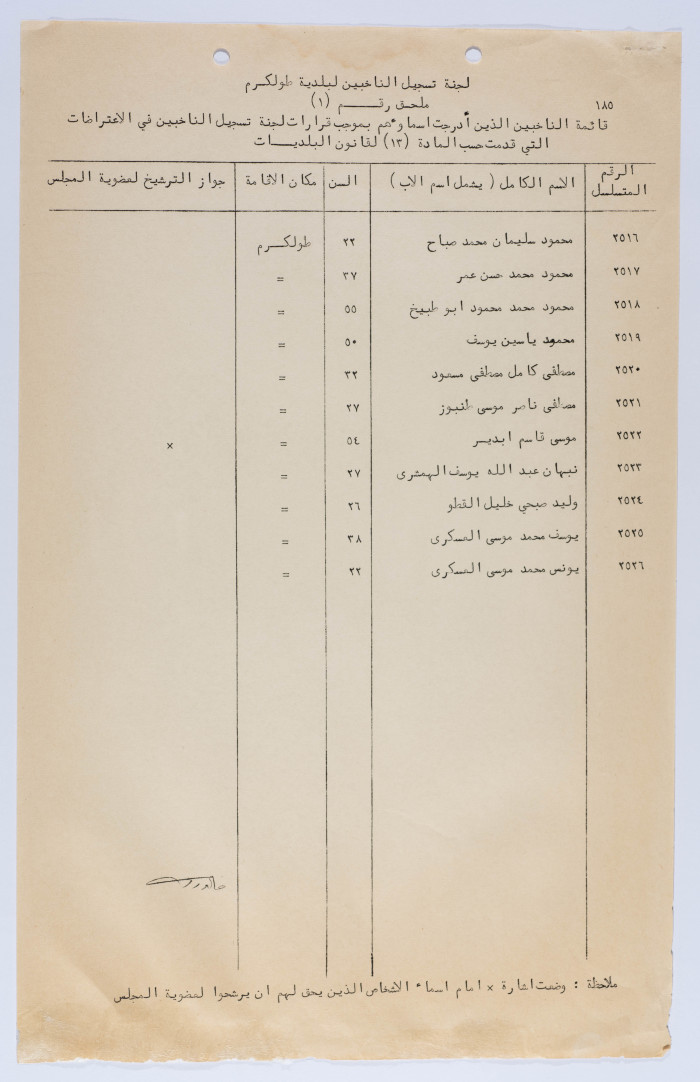 لجنة تسجيل الناخبين لبلدية طولكرم
١٨٥ ملحق رقم (١)
قائمة الناخبين الذين أدرجت اسماوءهم بموجب قرارات لجنة تسجيل الناخبين في الاعتراضات
التي قدمت حسب المادة (١٣) لقانون البلديات
الرقم المتسلسل الاسم الكامل ( يشمل اسم الاب ) السن مكان الاقامة جواز الترشيخ لعضوية المجلس
٢٥١٦ محمود سليمان محمد صباح ٢٢ طولكرم
٢٥١٧ محمود محمد حسن عمر ٣٧ =
٢٥١٨ محمود محمد محمود ابو طبيخ ٥٥ =
٢٥١٩ محمود ياسين يوسف ٥٠ =
٢٥٢٠ مصطفى كامل مصطفى مسعود ٣٢ =
٢٥٢١ مصطفى ناصر موسى طنبوز ٢٧ =
٢٥٢٢ موسى قاسم ابدير ٥٤ = ×
٢٥٢٣ نبهان عبد الله يوسف الهمشرى ٢٧ =
٢٥٢٤ وليد صبحي خليل القطو ٢٦ =
٢٥٢٥ يوسف محمد موسى العسكرى ٣٨ =
٢٥٢٦ يونس محمد موسى العسكرى ٢٢ =
ملاحظة : وضعت اشارة × امام اسماء الاشخاص الذين يحق لهم ان يرشحوا لعضوية المجلس